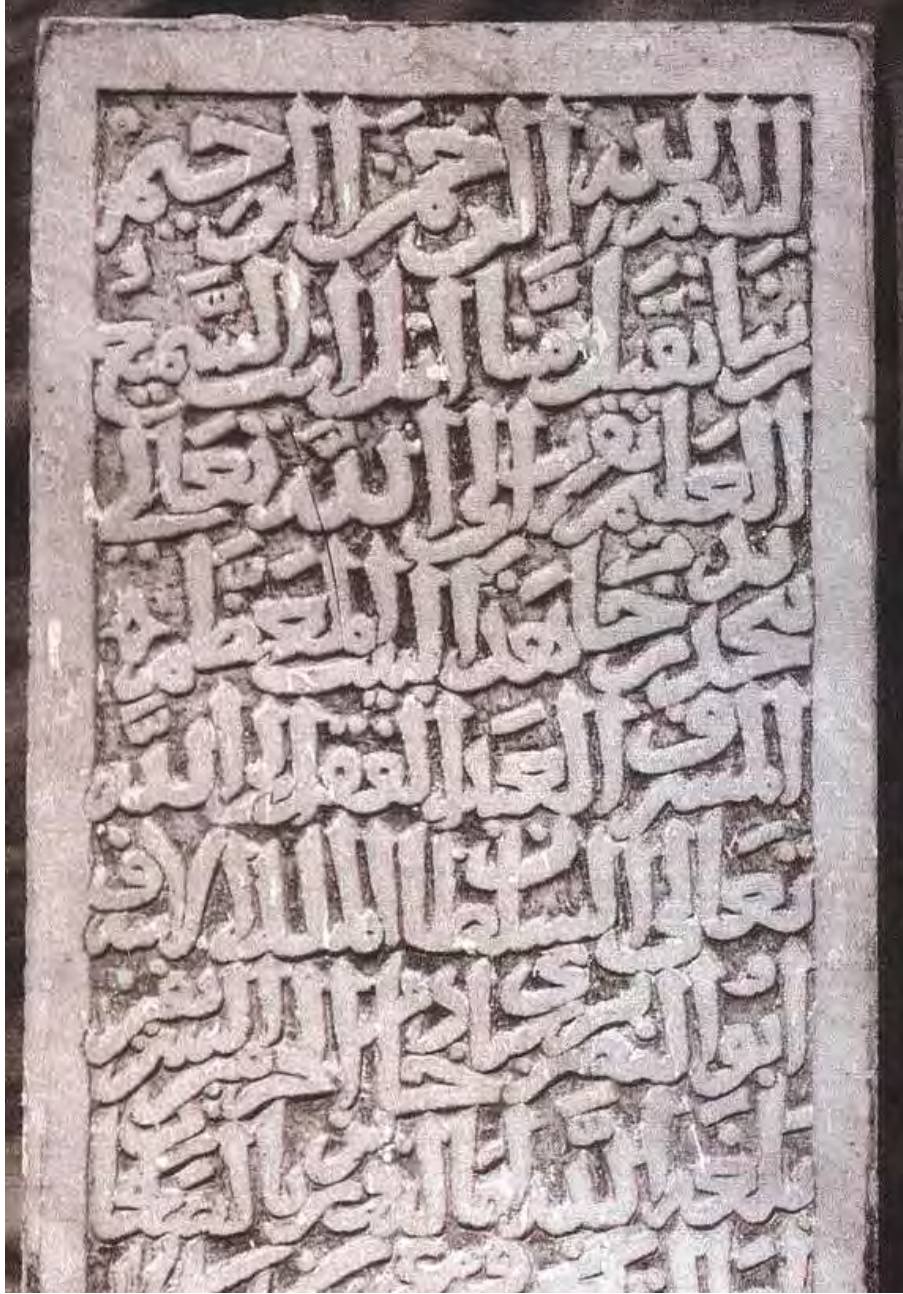 بسم الله الرحمن الرحيم
ربنا تقبل منا انك انت السميع
العليم تقرب الى الله تعالى
بتجديد رخام هذا البيت المعظم
المشرف العبد الفقير الى الله
تعالى السلطان الملك الاشرف
ابو النصر برسباي خادم الحرمين الشريفين
بلغه الله اماله وزين بالصالحات